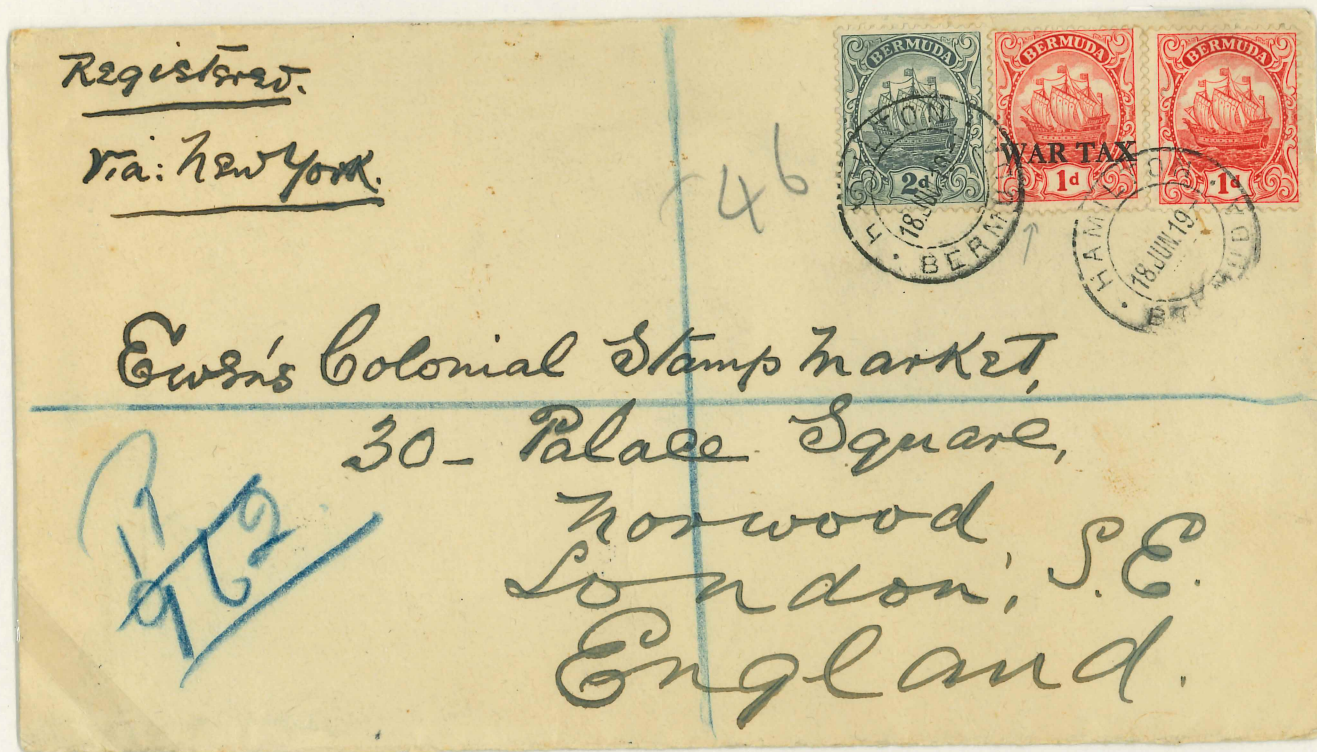 Registered.
Via: New York.
BERMUDA
2d
BERMUDA
WAR TAX
1d
BERMUDA
1d
HAMILTON
18.JUN.19
BERMUDA
HAMILTON
18.JUN.19
BERMUDA
46
Ewen's Colonial Stamp Market,
30- Palace Square,
Norwood,
London, S.E.
England.
R
962